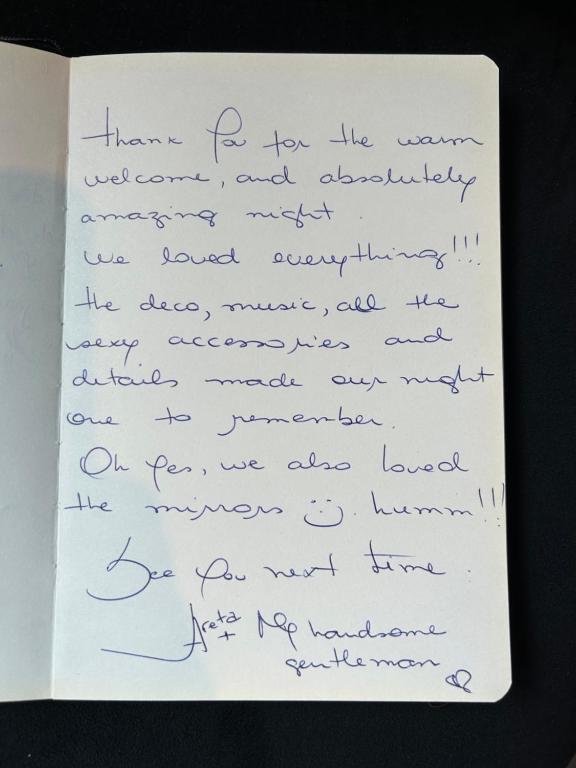 thank you for the warm
welcome, and absolutely
amazing night.
we loved everything!!!
the deco, music, all the
sexy accessories and
details made our night
one to remember.
Oh yes, we also loved
the mirrors :). humm!!!
See you next time.
Areta
+ My handsome
gentleman ♡